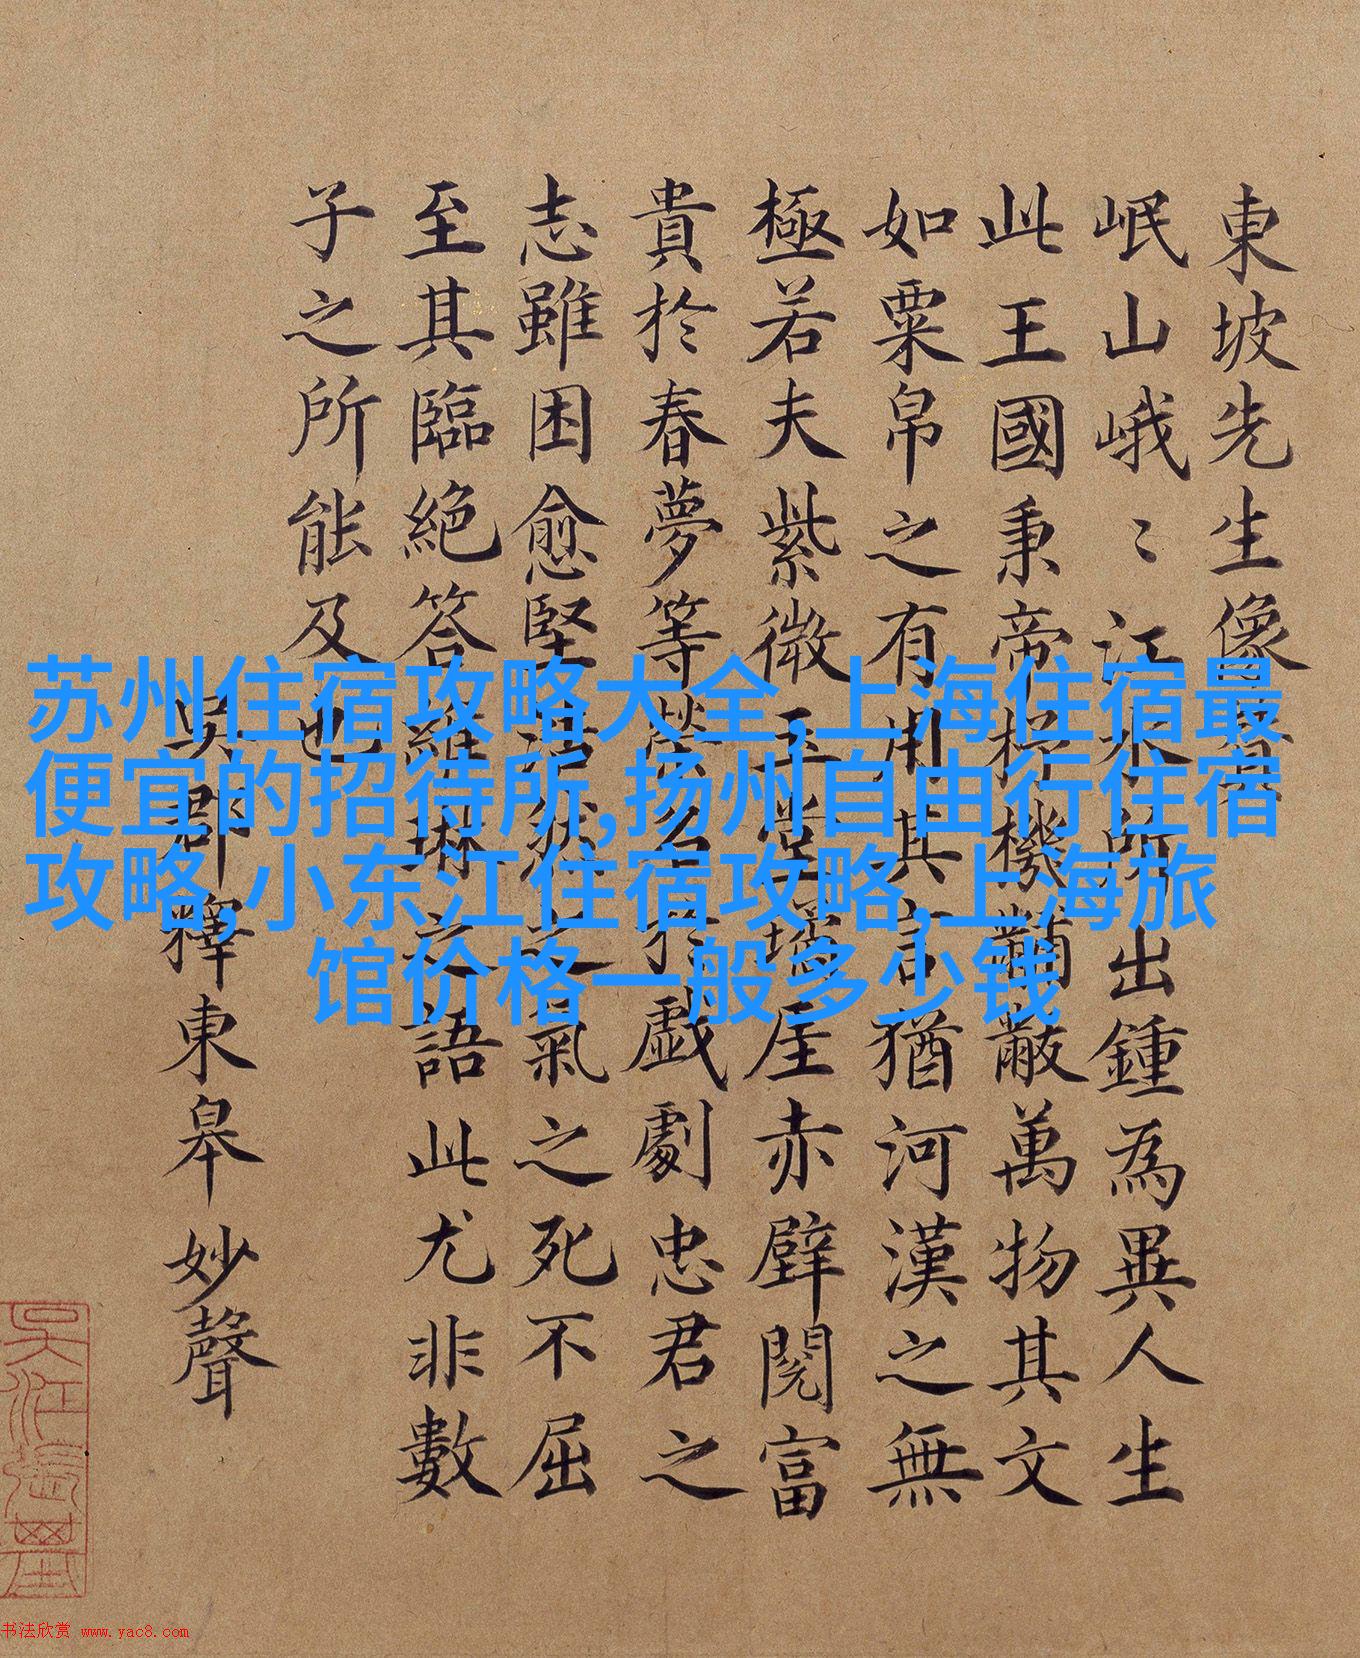 東坡先生像贊
岷山峨〻江水所出鍾為異人生
此王國秉帝杼機黼黻萬物其文
如粟帛之有用其言猶河漢之無
極若夫紫微玉堂瓊崖赤壁閱富
貴於春夢等榮名於戲劇忠君之
志雖困愈堅浩然之氣之死不屈
至其臨絕答維琳之語此尤非數
子之所能及也
吳郡釋東皋妙聲
苏州住宿攻略大全,上海住宿最
便宜的招待所,扬州自由行住宿
攻略,小东江住宿攻略,上海旅
馆价格一般多少钱
书法欣赏 www.yac8.com